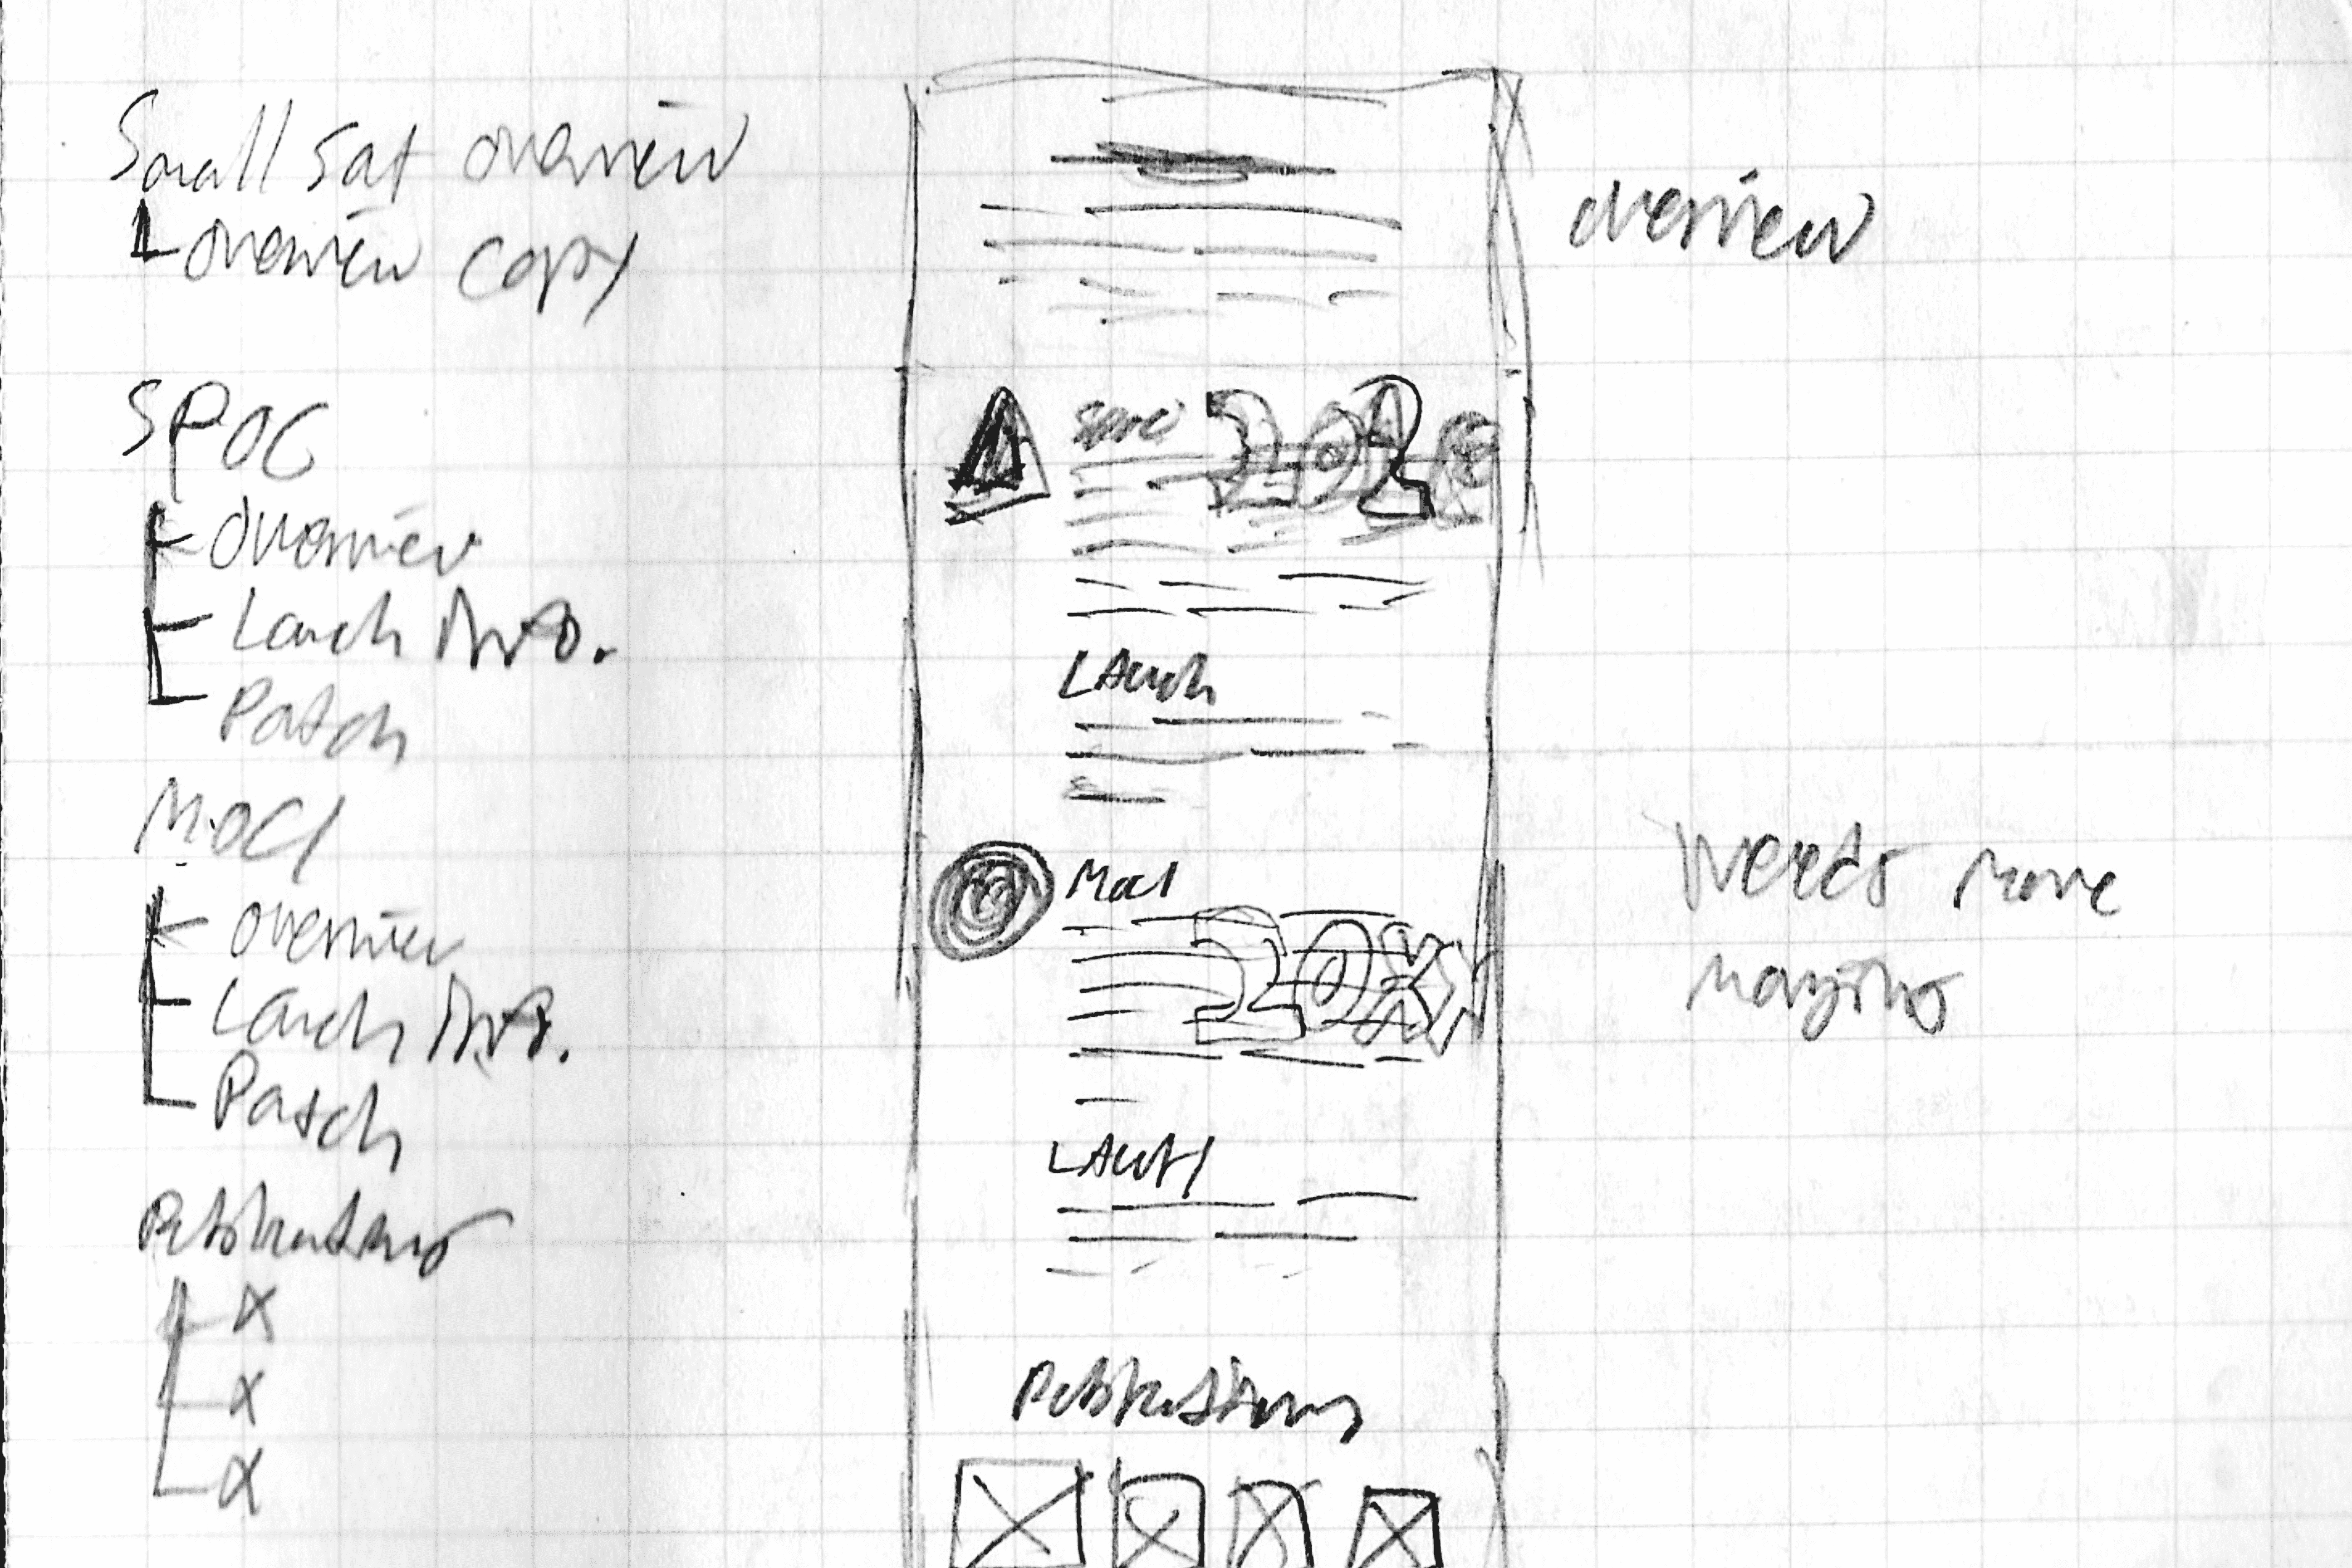 Small Sat overview
overview copy
SPOC
overview
Launch Info.
Patch
MOCI
overview
Launch Info.
Patch
Publications
X
X
X
SPOC
202
Launch
MOCI
20
LAUNCH
Publications
overview
Needs more
margins